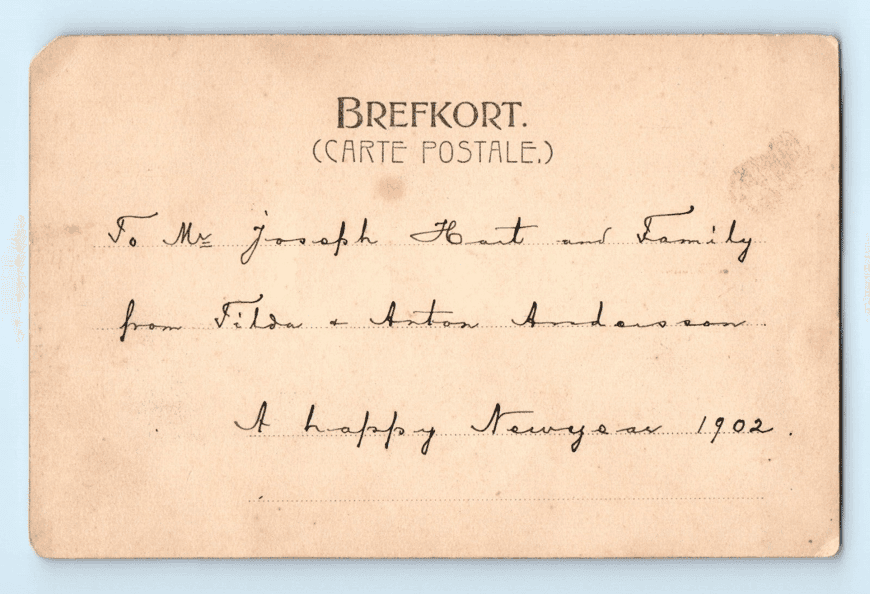 BREFKORT.
(CARTE POSTALE.)
To Mr Joseph Hart and Family
from Tilda & Anton Andersson
A happy Newyear 1902.